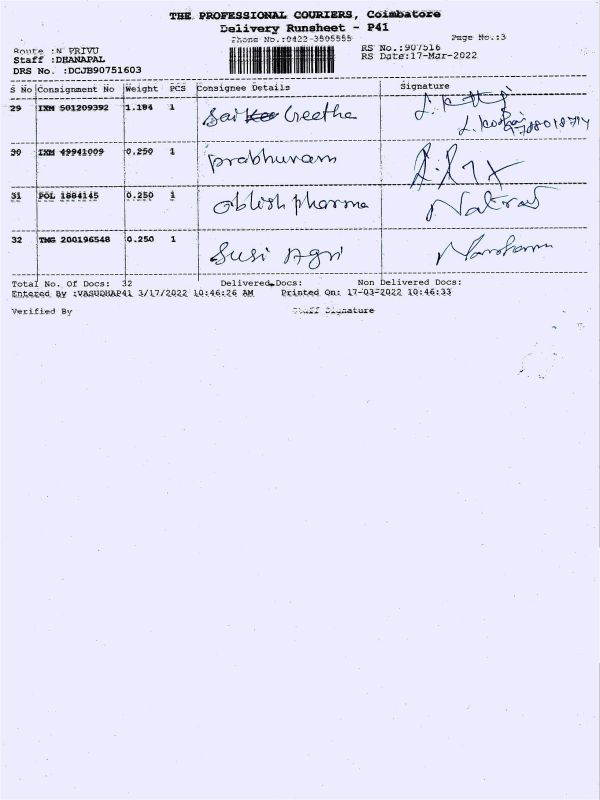 THE PROFESSIONAL COURIERS, Coimbatore
Delivery Runsheet - P41
Phone No.:0422-3505555
Page No.:3
Route :N PRIVU
RS No.:907516
Staff :DHANAPAL
RS Date:17-Mar-2022
DRS No. :DCJB90751603
S No Consignment No Weight PCS Consignee Details Signature
29 IXM 501209392 1.184 1 Sai Geetha
30 IXM 49941009 0.250 1 prabhuram
31 POL 1884145 0.250 1 pharma Natraj
32 TMG 200196548 0.250 1 Susi Agri
Total No. Of Docs: 32 Delivered Docs: Non Delivered Docs:
Entered By :VASUDHAP41 3/17/2022 10:46:26 AM Printed On: 17-03-2022 10:46:33
Verified By Staff Signature